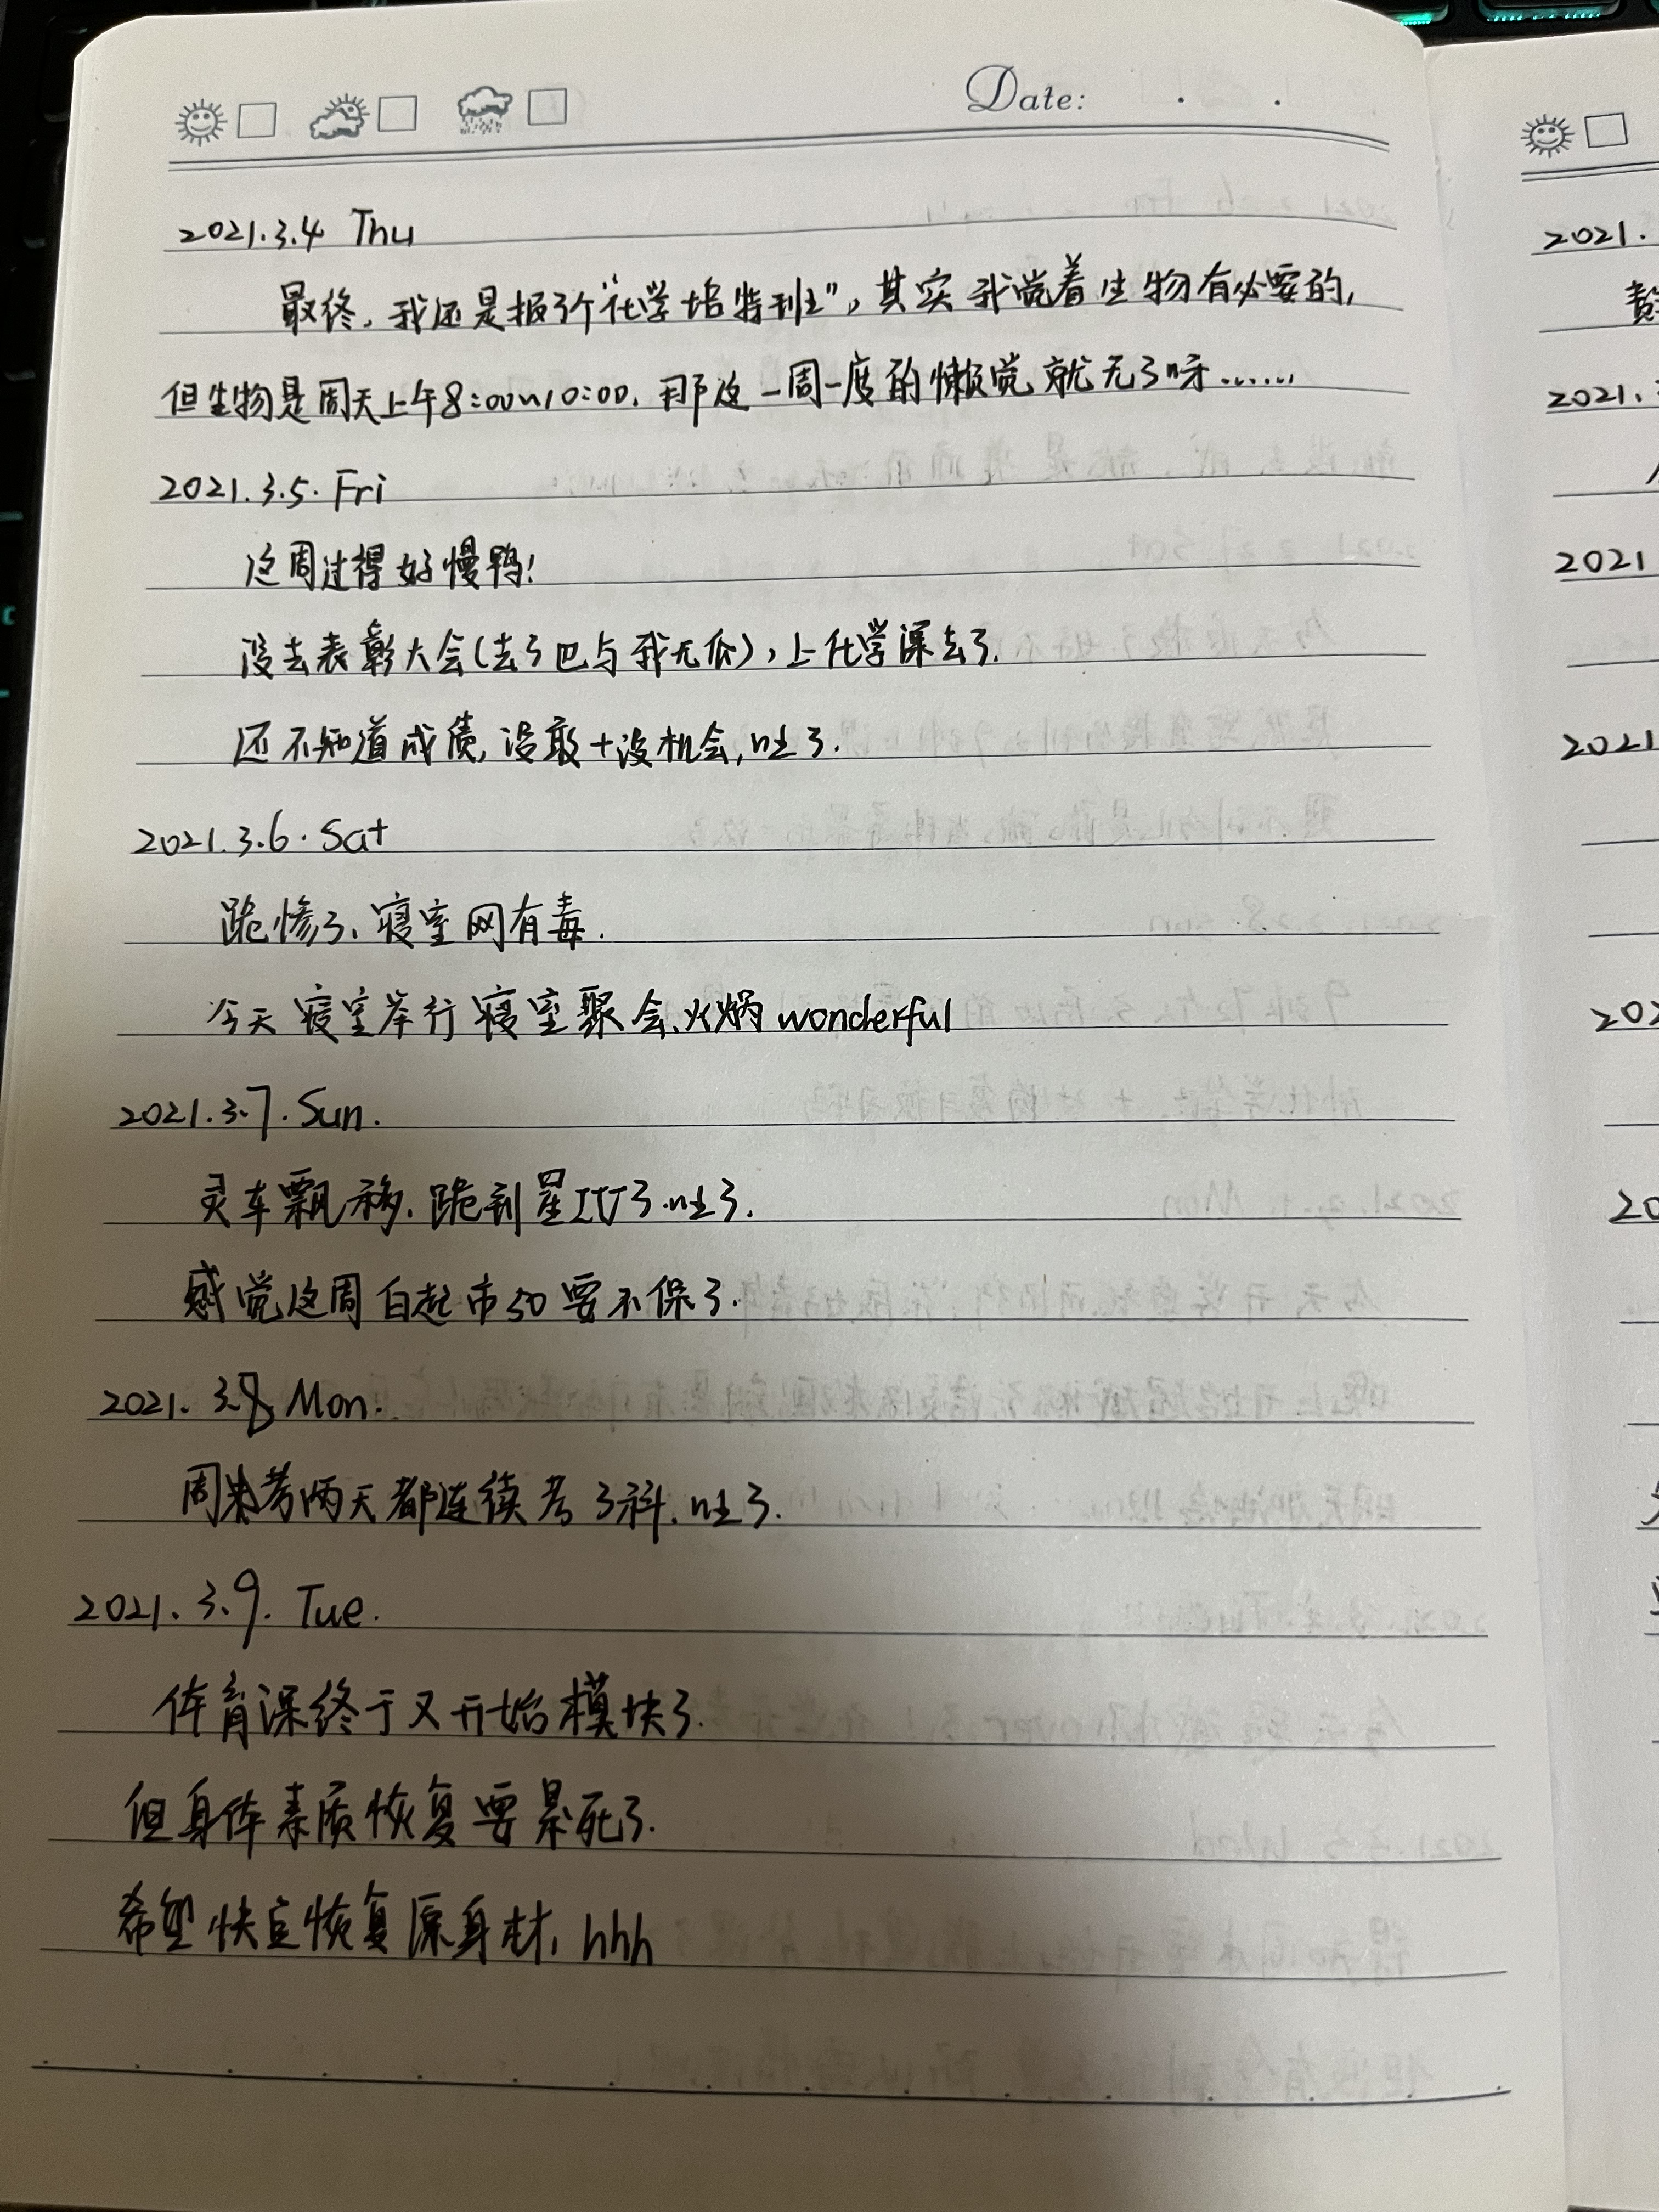 Date: . .
2021.3.4 Thu
最终,我还是报了个“化学培特班”,其实我觉着生物有必要的,
但生物是周天上午8:00~10:00,那这一周一度的懒觉就无了呀……
2021.3.5. Fri
这周过得好慢鸭!
没去表彰大会(去了也与我无瓜),上化学课去了.
还不知道成绩,没敢+没机会,吐了.
2021.3.6. Sat
跪惨了、寝室网有毒.
今天寝室举行寝室聚会、火锅wonderful
2021.3.7. Sun.
灵车飘移.跪到星IV了.吐了.
感觉这周白起市50要不保了.
2021. 3.8 Mon.
周末考两天都连续考3科.吐了.
2021. 3.9. Tue.
体育课终于又开始模块了.
但身体素质恢复要累死了.
希望快点恢复原身材, hhh
2021.
2021.
2021
2021
202
20